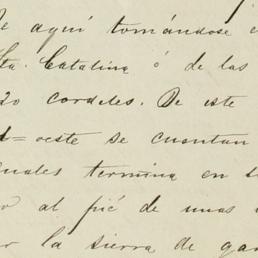 de aquí tomándose
Sta. Catalina ó de las
20 cordeles. De este
d=oeste se cuentan
cuales termina en
al pié de unas
la sierra de